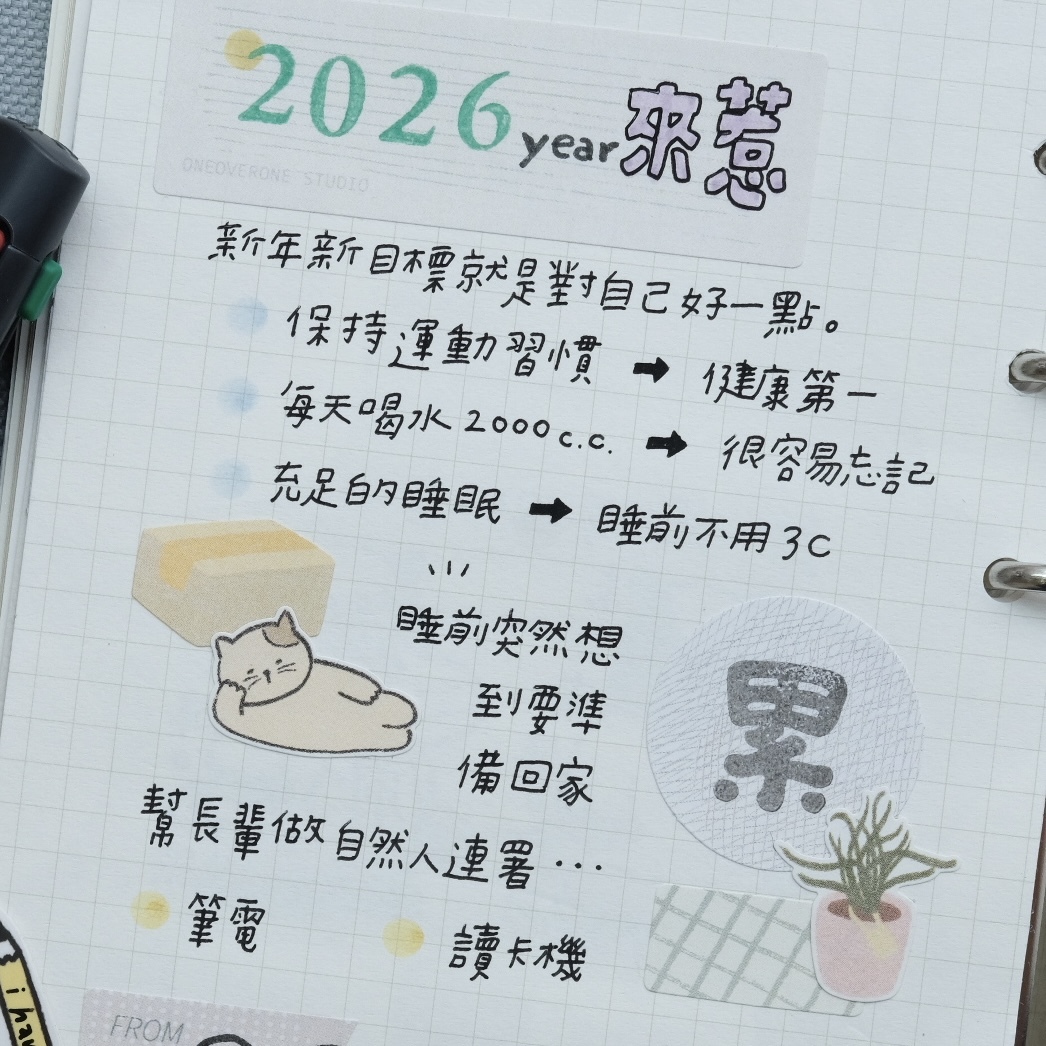 2026 year 來惹
ONEOVERONE STUDIO
新年新目標就是對自己好一點。
保持運動習慣 ➡ 健康第一
每天喝水 2000 c.c. ➡ 很容易忘記
充足的睡眠 ➡ 睡前不用 3C
睡前突然想
到要準
備回家
累
幫長輩做自然人連署...
筆電
讀卡機
i hav
FROM